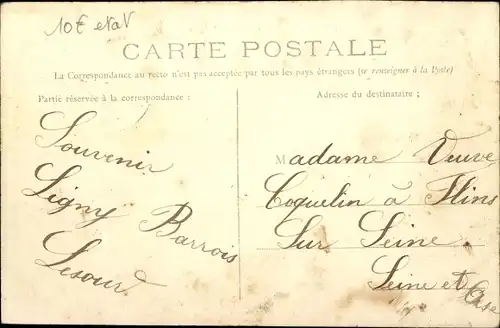 10€
CARTE POSTALE
La Correspondance au recto n'est pas acceptée par tous les pays étrangers (se renseigner à la Poste)
Partie réservée à la correspondance :
Adresse du destinataire ;
Souvenir
Ligny Barrois
Lesourd
Madame Veuve
Coquelin à Flins
Sur Seine
Seine et Oise